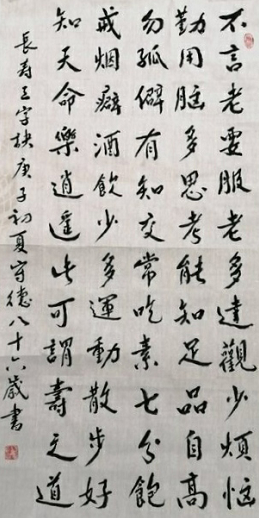 不言老要服老多達觀少煩惱
勤用腦多思考能知足品自高
勿孤僻有知交常吃素七分飽
戒烟癖酒飲少多運動散步好
知天命樂逍遥此可謂壽之道
長寿五字枝庚子初夏守德八十六歲書